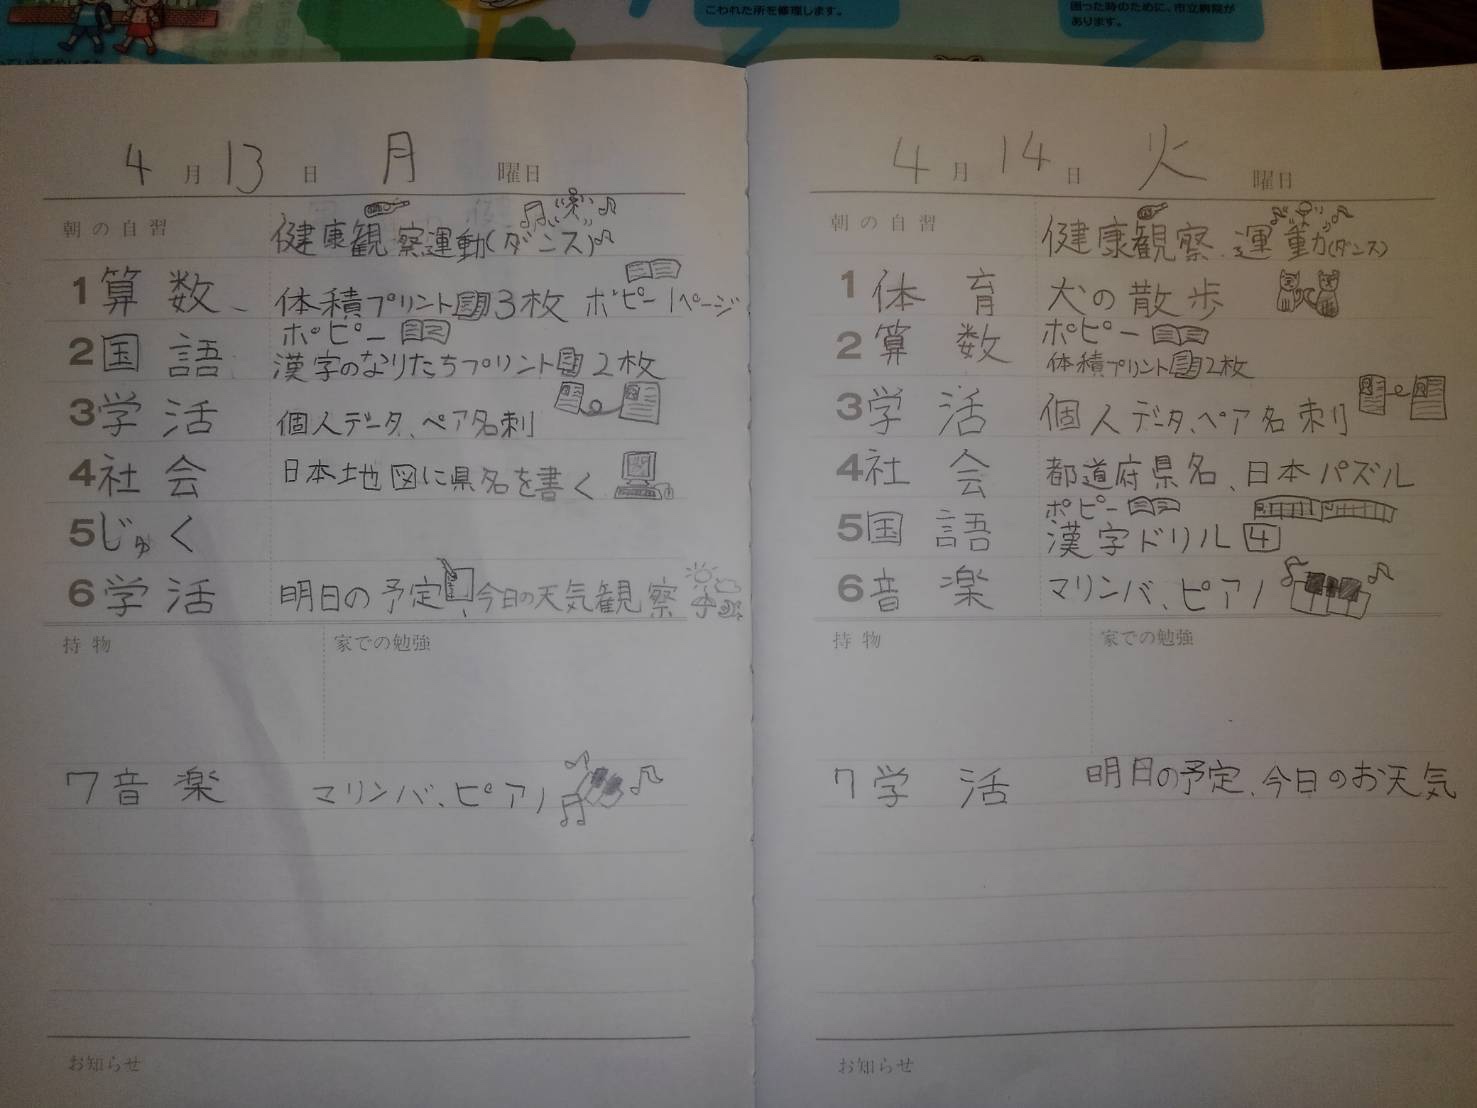 こわれた所を修理します。
困った時のために、市立病院が
あります。
4月13日 月 曜日
朝の自習 健康観察、運動(ダンス)
1 算数、 体積プリント3枚 ポピー1ページ
2 国語 ポピー
漢字のなりたちプリント2枚
3 学活 個人データ、ペア名刺
4 社会 日本地図に県名を書く
5 じゅく
6 学活 明日の予定、今日の天気観察
持物 家での勉強
7 音楽 マリンバ、ピアノ
お知らせ
4月14日 火 曜日
朝の自習 健康観察、運動(ダンス)
1 体育 犬の散歩
2 算数 ポピー
体積プリント2枚
3 学活 個人データ、ペア名刺
4 社会 都道府県名、日本パズル
5 国語 ポピー
漢字ドリル4
6 音楽 マリンバ、ピアノ
持物 家での勉強
7 学活 明日の予定、今日のお天気
お知らせ